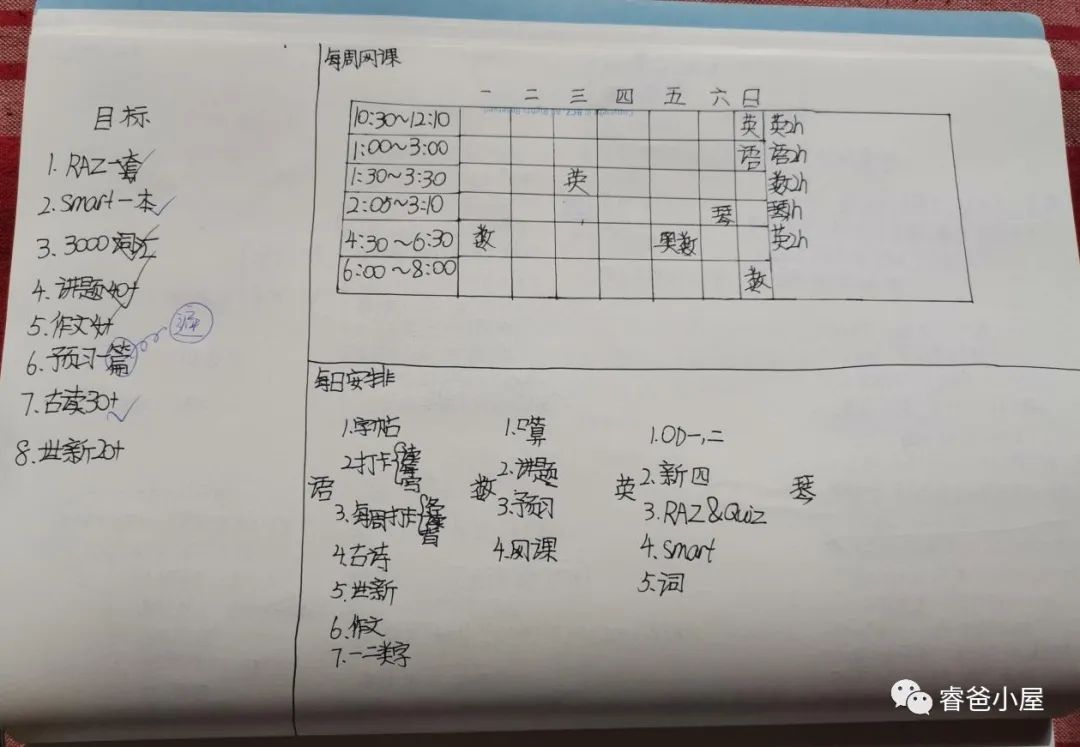 目标
1. RAZ一套
2. smart一本
3. 3000词汇
4. 讲题40+
5. 作文4+
6. 预习一篇
7. 古读30+
8. 世新20+
每周网课
一 二 三 四 五 六 日
10:30~12:10 英 英2h
1:00~3:00 语 语2h
1:30~3:30 英 数2h
2:05~3:10 琴 琴h
4:30~6:30 数 奥数 英2h
6:00~8:00 数
每日安排
语
1.字帖
2.打卡
3.每周打卡
4.古诗
5.世新
6.作文
7.一二类字
数
1.口算
2.讲题
3.预习
4.网课
英
1.OD一,二
2.新四
3.RAZ&Quiz
4.smart
5.词
琴
睿爸小屋